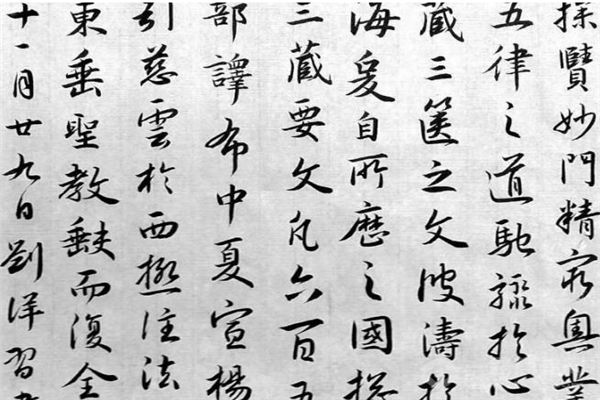 探賾妙門精窮奧業
五律之道馳驟於心
藏三篋之文波濤於
海爰自所歷之國揔
三藏要文凡六百五
部譯布中夏宣揚
引慈雲於西極注法
東垂聖教缺而復全
十一月廿九日劉洋習